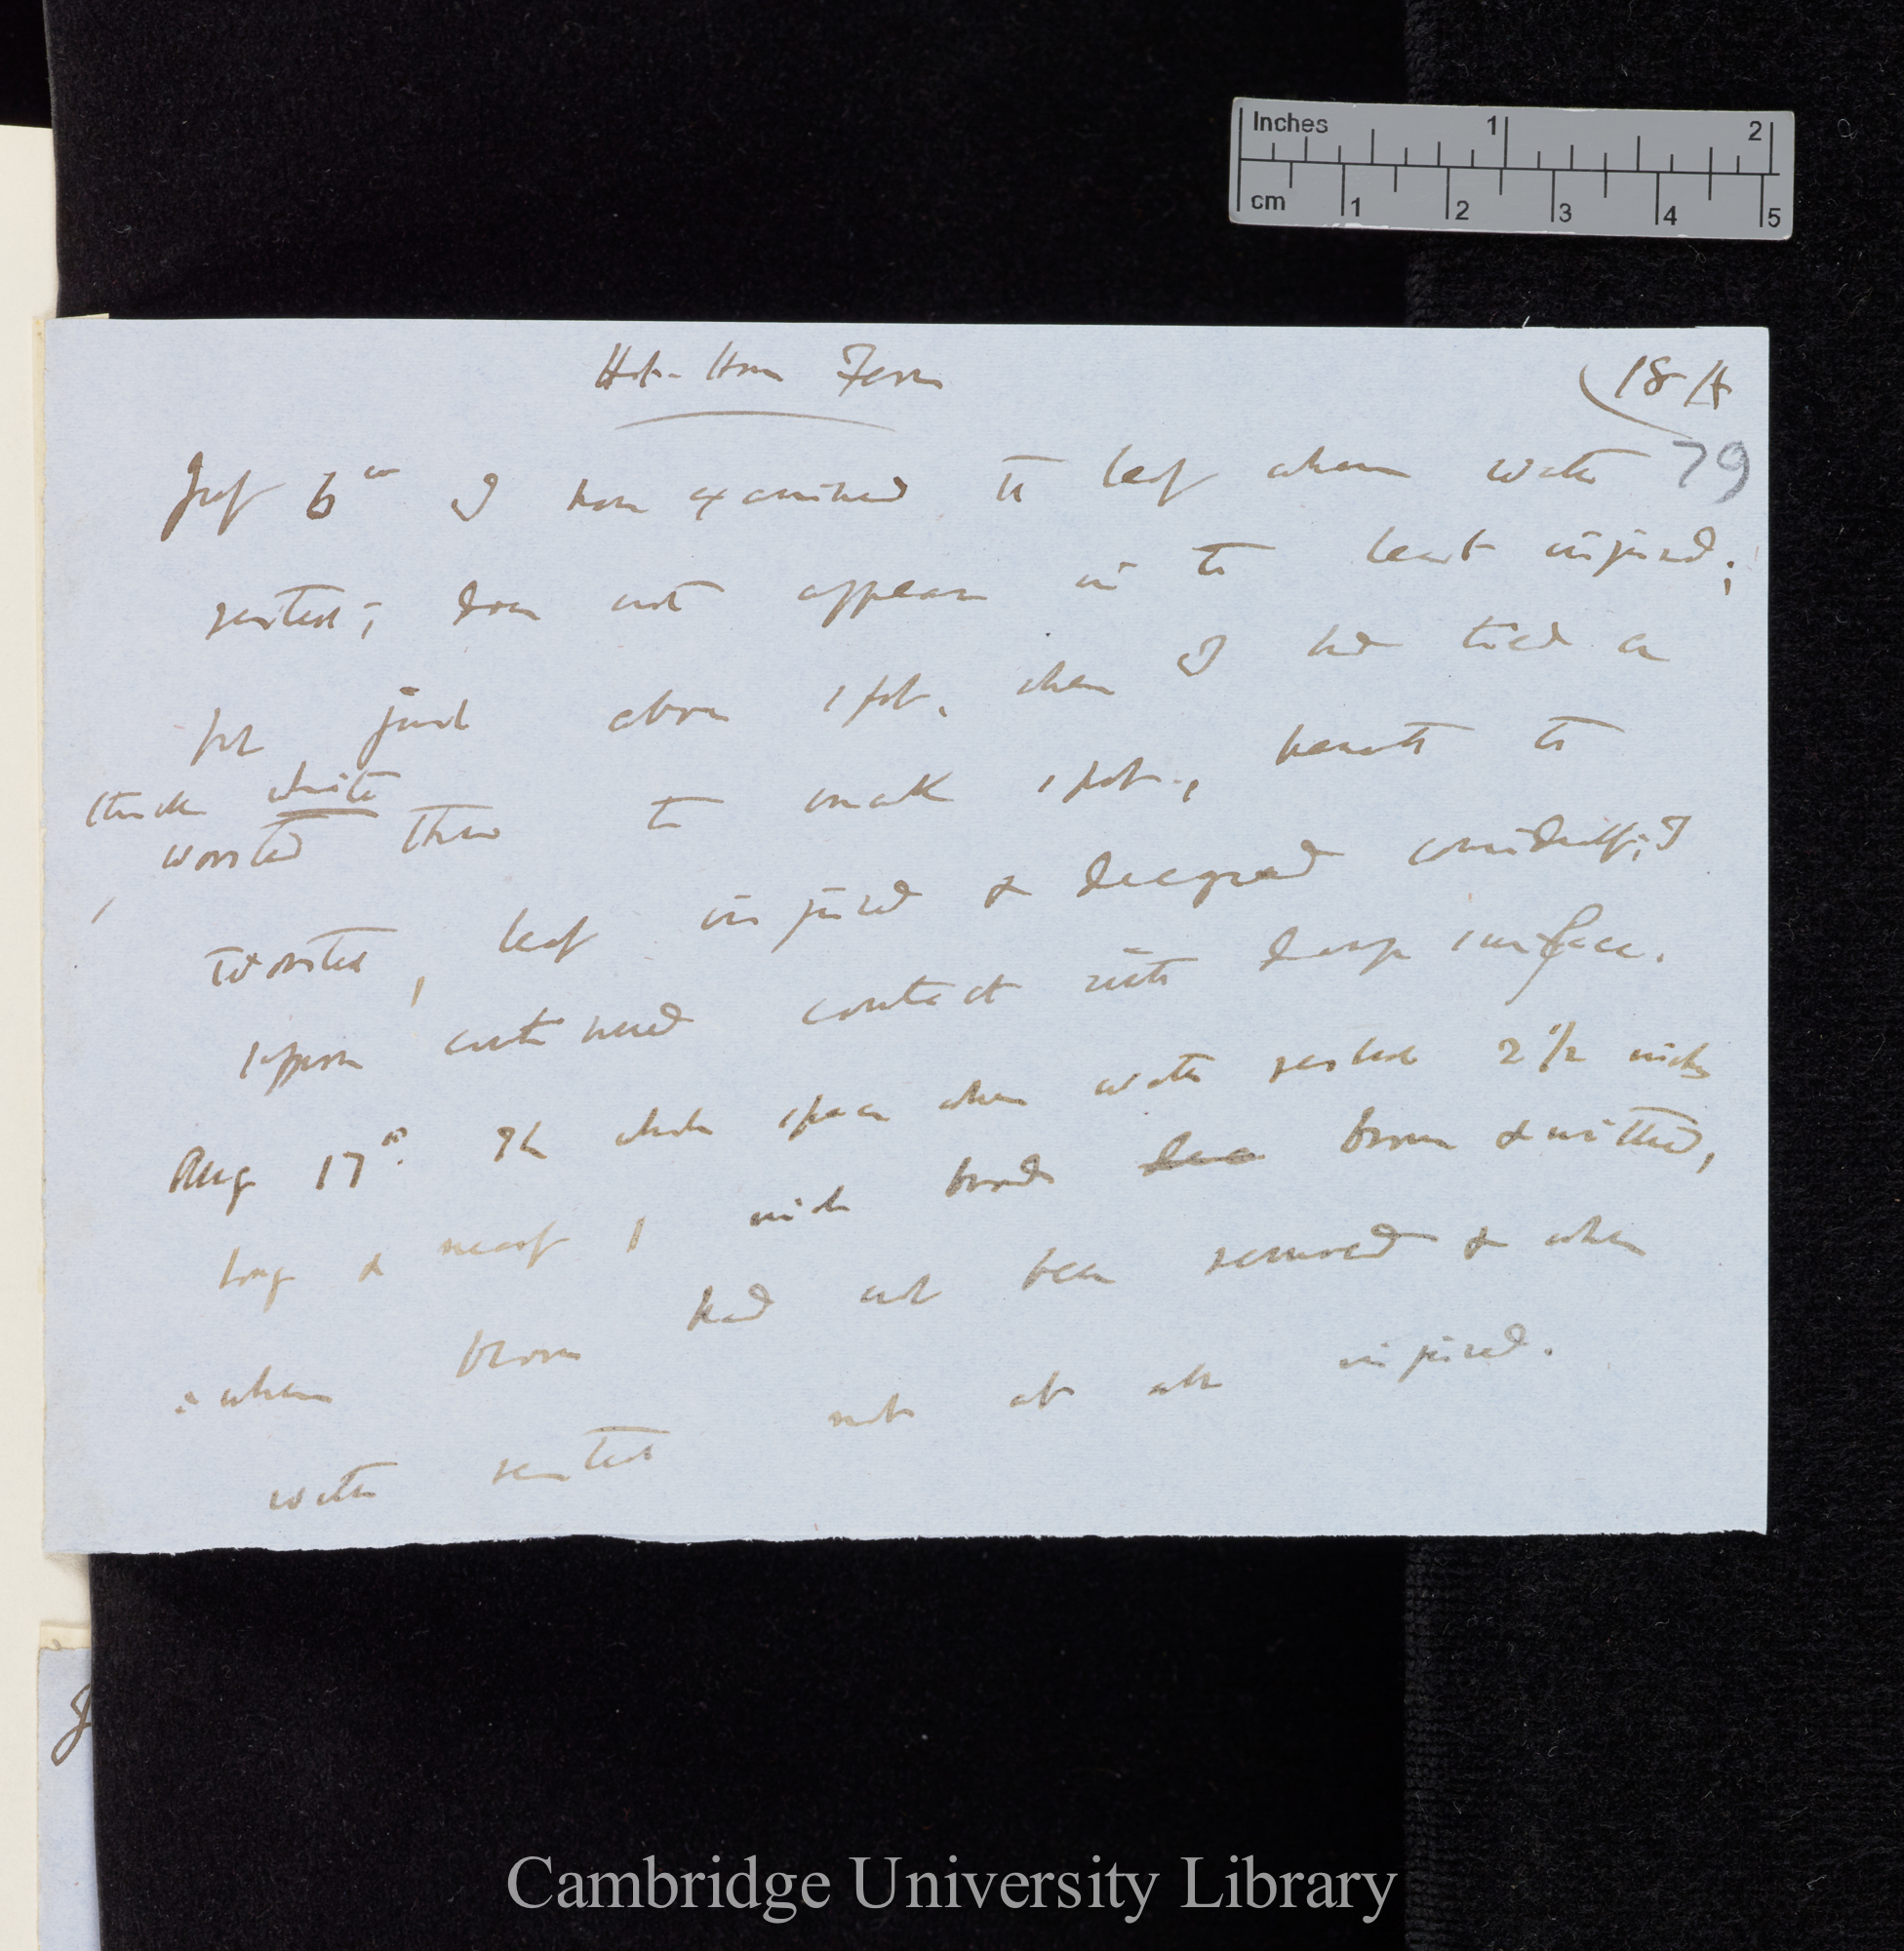 Inches 1 2
cm 1 2 3 4 5
Hot-House Fern
(18 A
79
July 6th I have examined the leaf where water
rested; does not appear in the least injured;
but just above spot, where I had tied a
thick white
worsted thread to mark spot, beneath the
worsted, leaf injured & decayed considerably; I
suppose continued contact with damp surface.
Aug 17th. The whole space where water rested 2 1/2 inches
long & nearly 1 inch broad brown & withered,
: where bloom had not been removed & where
water rested not at all injured.
Cambridge University Library